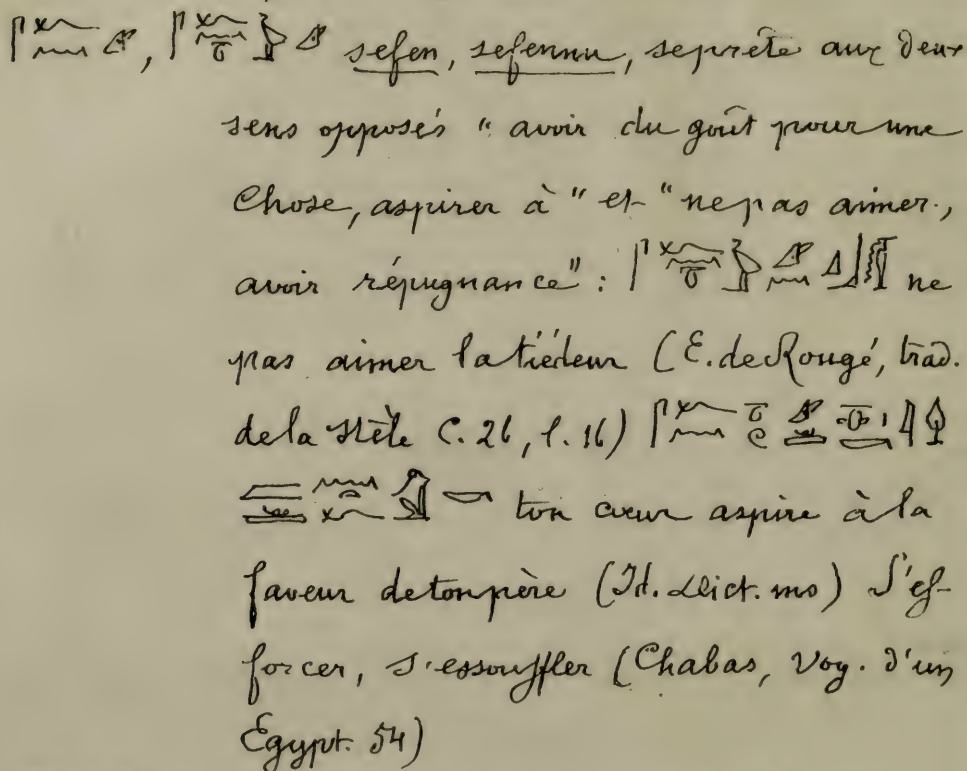 , sefen, sefennu, se prête aux deux
sens opposés "avoir du goût pour une
chose, aspirer à" et "ne pas aimer,
avoir répugnance": ne
pas aimer la tiédeur (E. de Rougé, trad.
de la Stèle C. 26, l. 16)
ton cœur aspire à la
faveur de ton père (Id. Dict. ms) S'ef-
forcer, s'essouffler (Chabas, Voy. d'un
Égypt. 54)